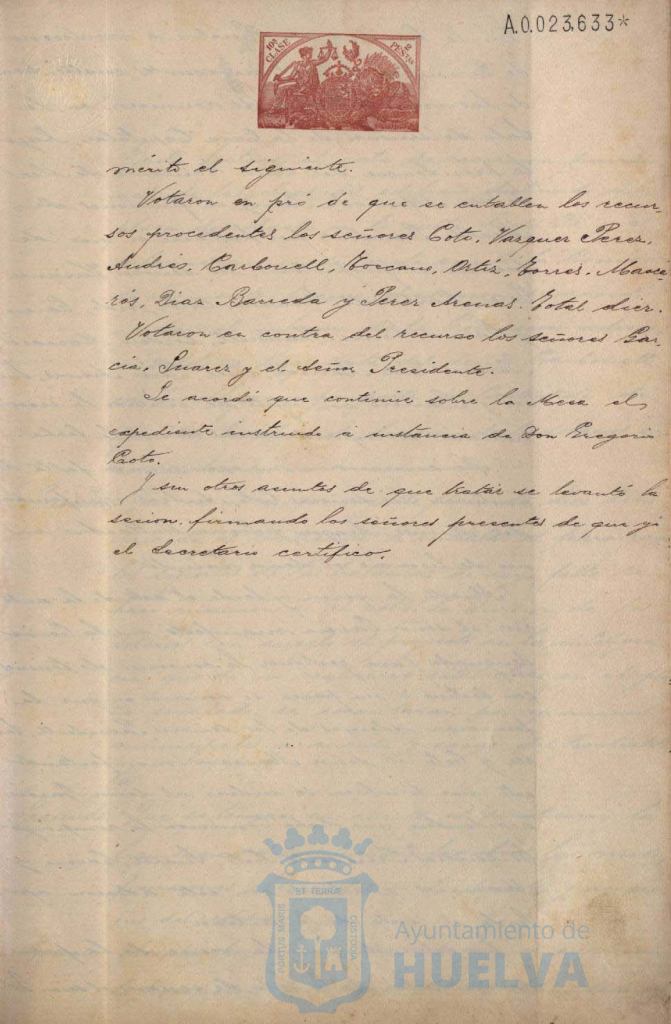 A.0.023,633*
10ª CLASE
2 PESETAS
mérito el siguiente.
Votaron en pró de que se entablen los recur-
sos procedentes los señores Coto, Vazquez Perez,
Andrés, Carbonell, Toscano, Ortíz, Torres, Mace-
rós, Diaz Barreda y Perez Arenas. Total diez.
Votaron en contra del recurso los señores Gar-
cía, Suarez y el Señor Presidente.
Se acordó que continúe sobre la Mesa el
expediente instruido á instancia de Don Gregorio
Coto.
Y sin otros asuntos de que tratar se levantó la
sesion, firmando los señores presentes de que yo
el Secretario certifico.
PORTUS MARIS ET TERRÆ CUSTODIA
Ayuntamiento de
HUELVA